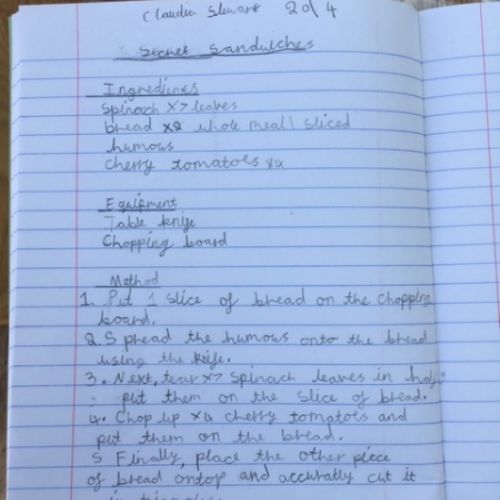 Claudia Stewart 20/4
Secret Sandwiches
Ingredients
Spinach x7 leaves
bread x2 whole meal sliced
humous
cherry tomatoes
Equipment
Table knife
Chopping board
Method
1. Put 1 slice of bread on the chopping
board.
2. Spread the humous onto the bread
using the knife.
3. Next, tear x7 spinach leaves in half
put them on the slice of bread.
4. Chop up x4 cherry tomatoes and
put them on the bread.
5 Finally, place the other piece
of bread ontop and accuratly cut it
in